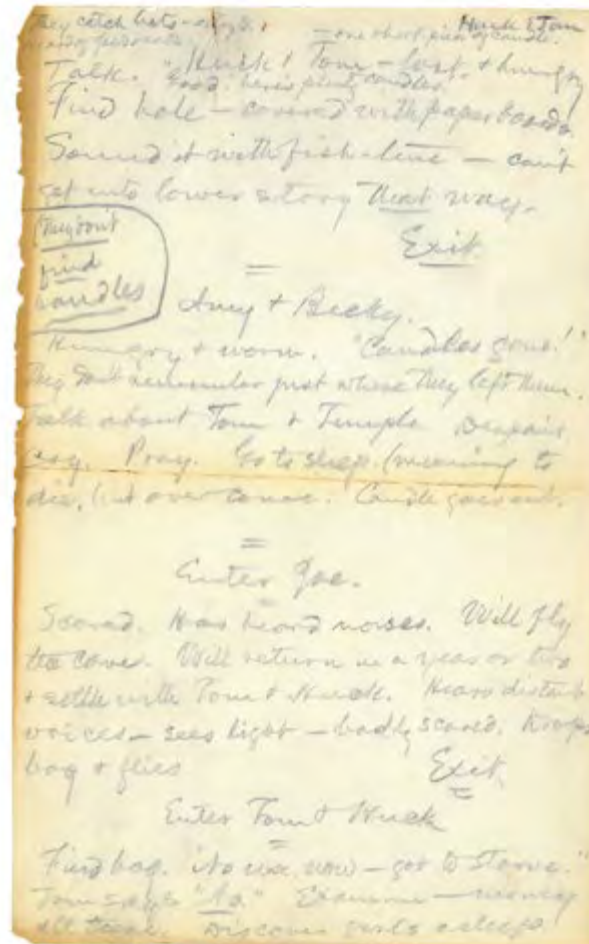 They catch bats
Huck & Tom
= one short piece of candle.
Talk. "Huck & Tom – lost, & hungry
Good, here's plenty candles.
Find hole – covered with paper boards.
Sound it with fish-line – can't
get into lower story that way.
Exit.
=
(They don't
find
candles
Amy & Becky.
Hungry & worn. "Candles gone!"
They don't remember just where they left them.
Talk about Tom & Temple. Despair.
Pray. Go to sleep. (meaning to
die, but overcome. Candle goes out.
=
Enter Joe.
=
Scared. Has heard noises. Will fly
the cave. Will return in a year or two
& settle with Tom & Huck. Hears distant
voices – sees light – badly scared. Drops
bag & flies
Exit.
=
Enter Tom & Huck
=
Find bag. "No use, now – got to starve."
Tom says "No." Examine – money
all there. Discover girls asleep.